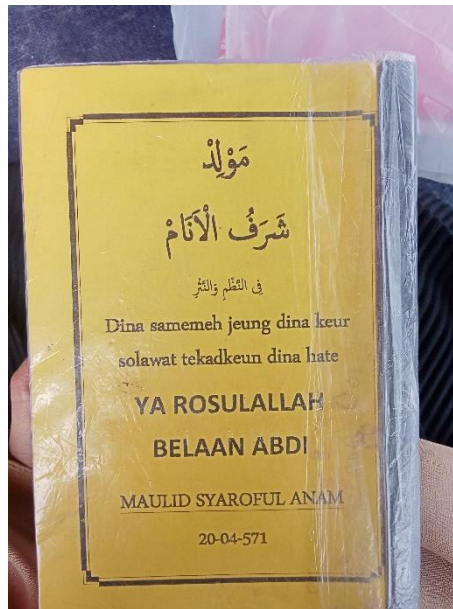 مَوْلِدْ
شَرَفُ الْأَنَامْ
فِى النَّظْمِ وَالنَّثْرِ
Dina samemeh jeung dina keur
solawat tekadkeun dina hate
YA ROSULALLAH
BELAAN ABDI
MAULID SYAROFUL ANAM
20-04-571